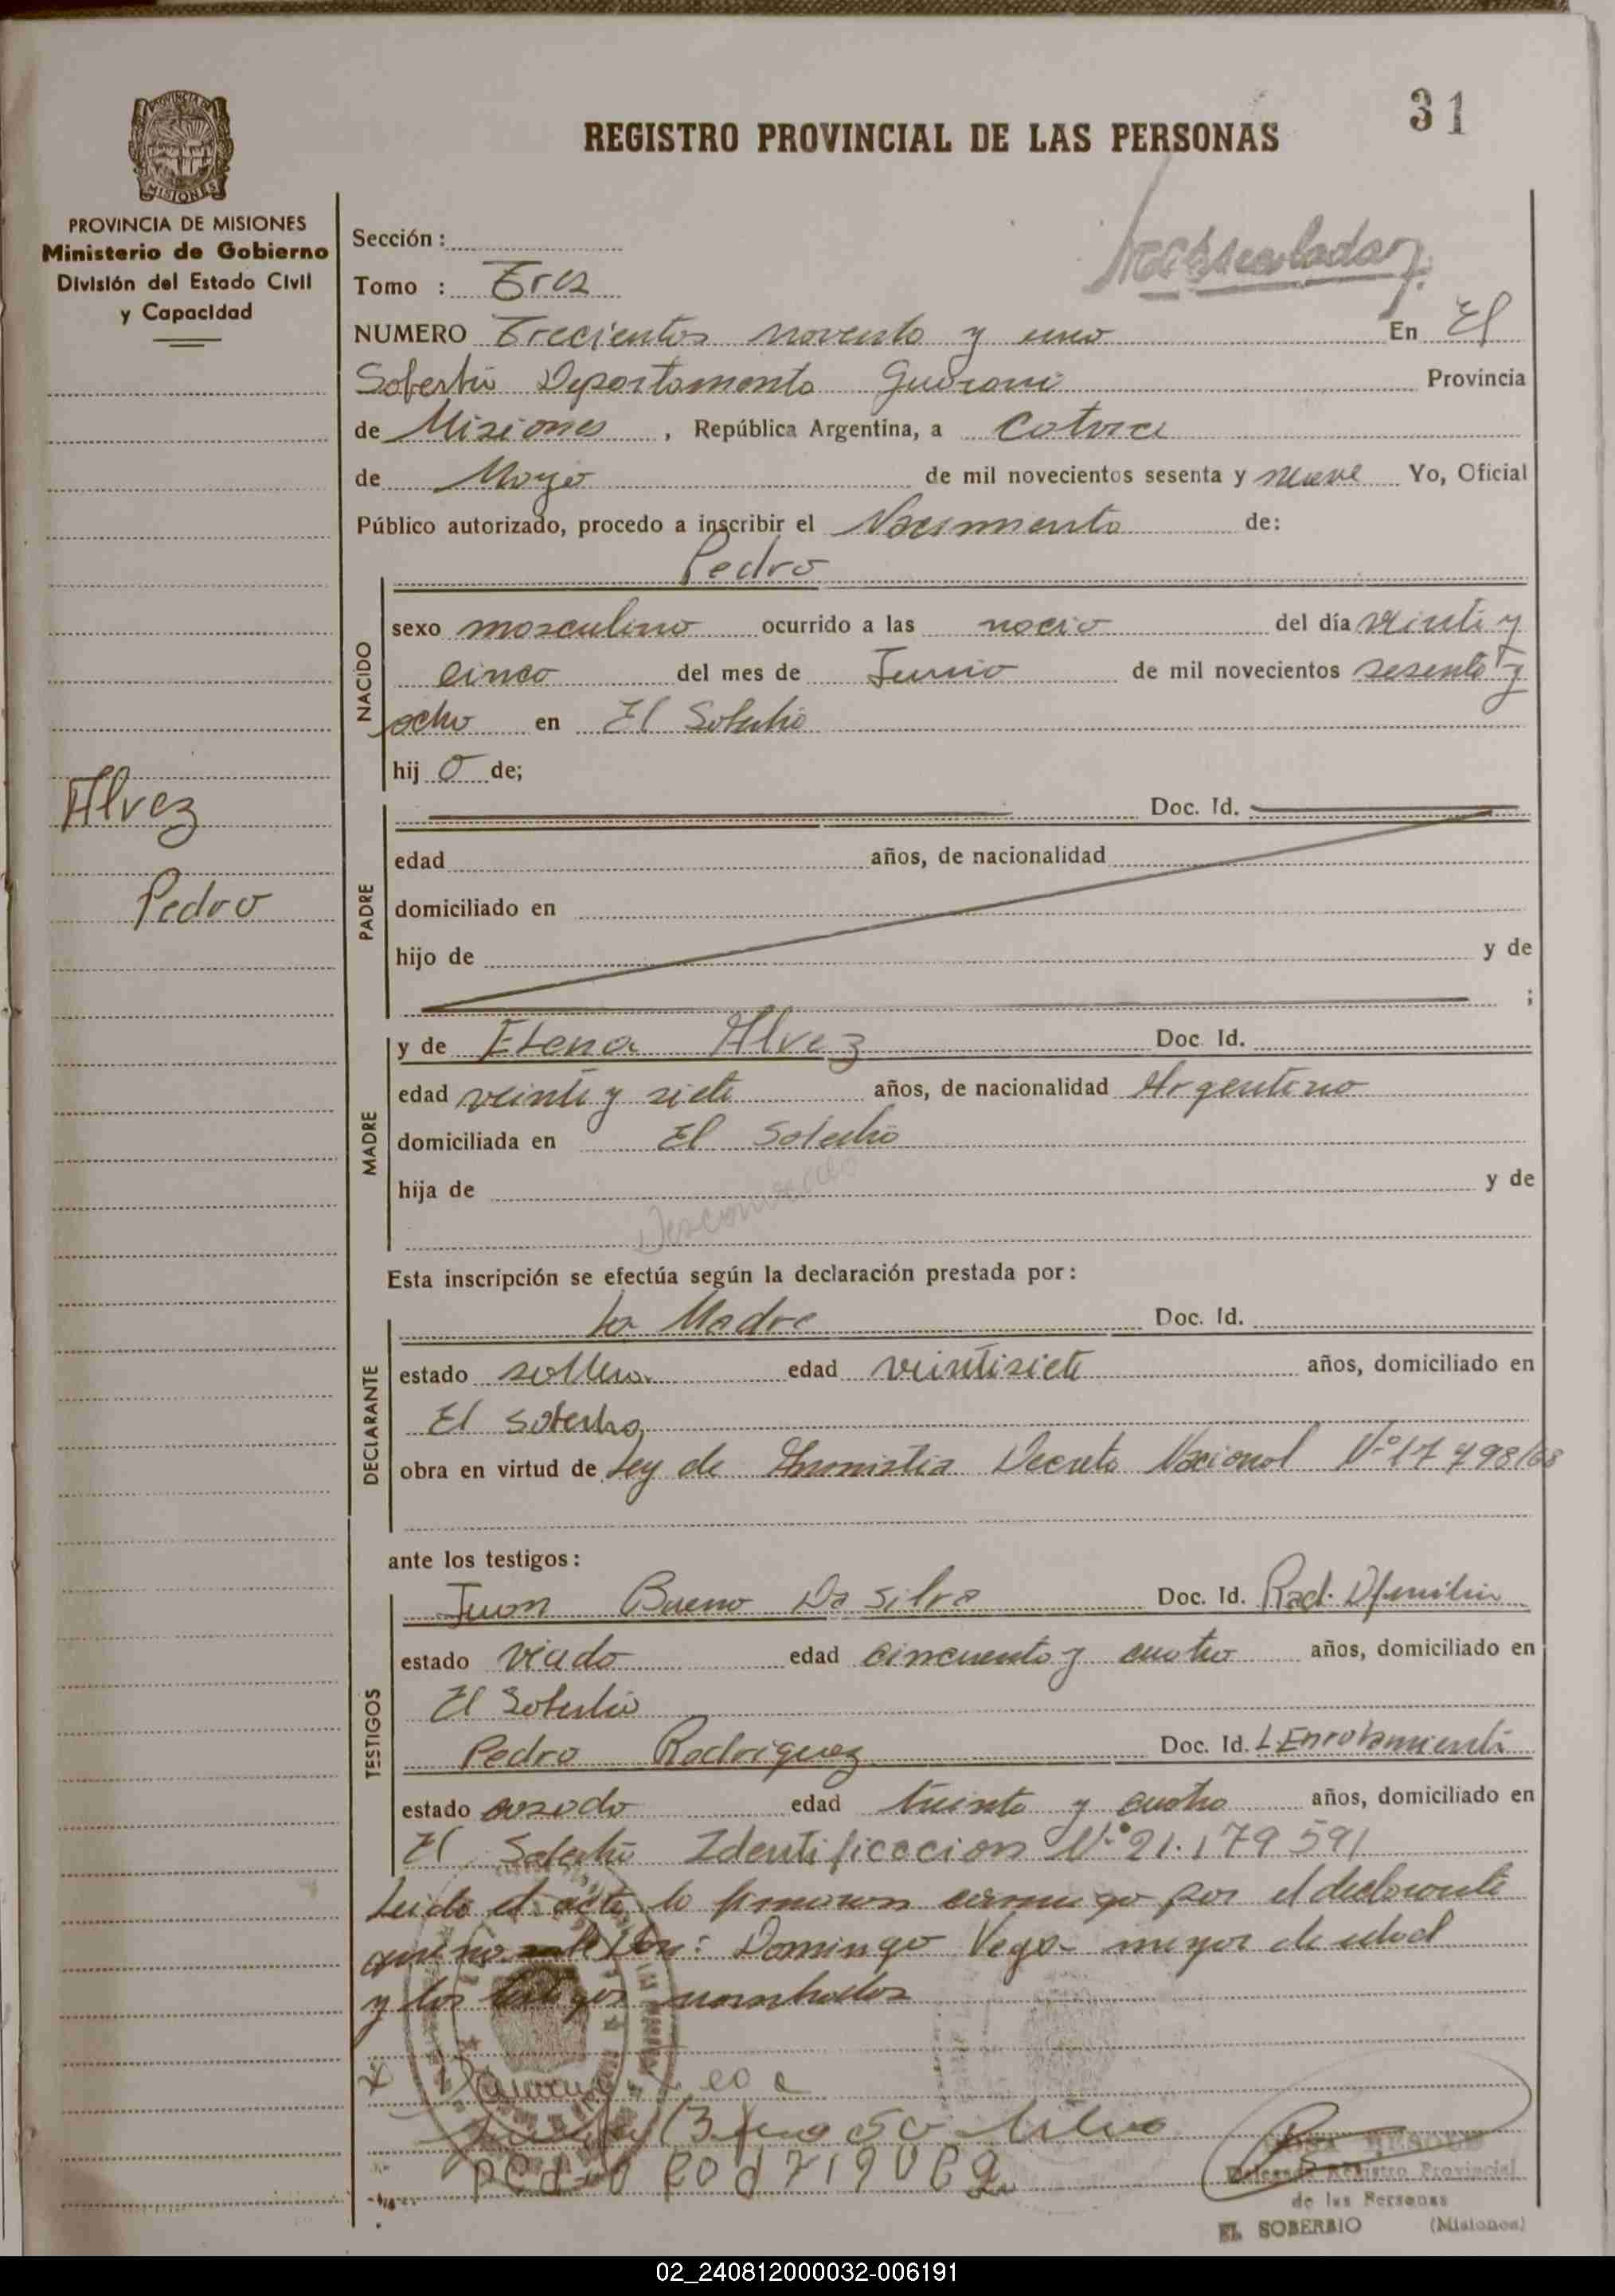 31
REGISTRO PROVINCIAL DE LAS PERSONAS
PROVINCIA DE MISIONES
MISIONES
PROVINCIA DE MISIONES
Ministerio de Gobierno
División del Estado Civil
y Capacidad
Sección :
Tomo : Tres
NUMERO Trecientos noventa y uno En El
Soberbio Departamento Guarani Provincia
de Misiones , República Argentina, a Catorce
de Mayo de mil novecientos sesenta y nueve Yo, Oficial
Público autorizado, procedo a inscribir el Nacimiento de:
Pedro
NACIDO
sexo masculino ocurrido a las nacio del día veinti y
cinco del mes de Junio de mil novecientos sesenta y
ocho en El Soberbio
hij o de;
Alvez
Pedro
PADRE
Doc. Id.
edad años, de nacionalidad
domiciliado en
hijo de y de
;
MADRE
y de Elena Alvez Doc. Id.
edad veinti y siete años, de nacionalidad Argentina
domiciliada en El Soberbio
hija de y de
Desconocido
Esta inscripción se efectúa según la declaración prestada por :
DECLARANTE
La Madre Doc. Id.
estado soltera edad veintisiete años, domiciliado en
El Soberbio
obra en virtud de Ley de Amnistia Decreto Nacional Nº 17798/68
ante los testigos :
TESTIGOS
Juan Bueno Da Silva Doc. Id. Rad.
estado viudo edad cincuenta y cuatro años, domiciliado en
El Soberbio
Pedro Rodriguez Doc. Id. L Enrolamiento
estado casado edad treinta y cuatro años, domiciliado en
El Soberbio Identificacion Nº 21.179591
Leido el acta lo firmaron conmigo por el declarante
que no Domingo Vega mayor de edad
y los testigos nombrados
Delegado Registro Provincial
de las Personas
EL SOBERBIO (Misiones)
02_240812000032-006191